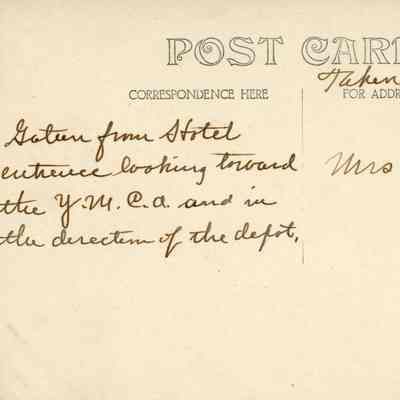 POST CAR
Taken
CORRESPONDENCE HERE
FOR ADDR
Gatun from Hotel
entrence looking toward
the Y.M.C.A. and in
the direction of the depot.
Mrs